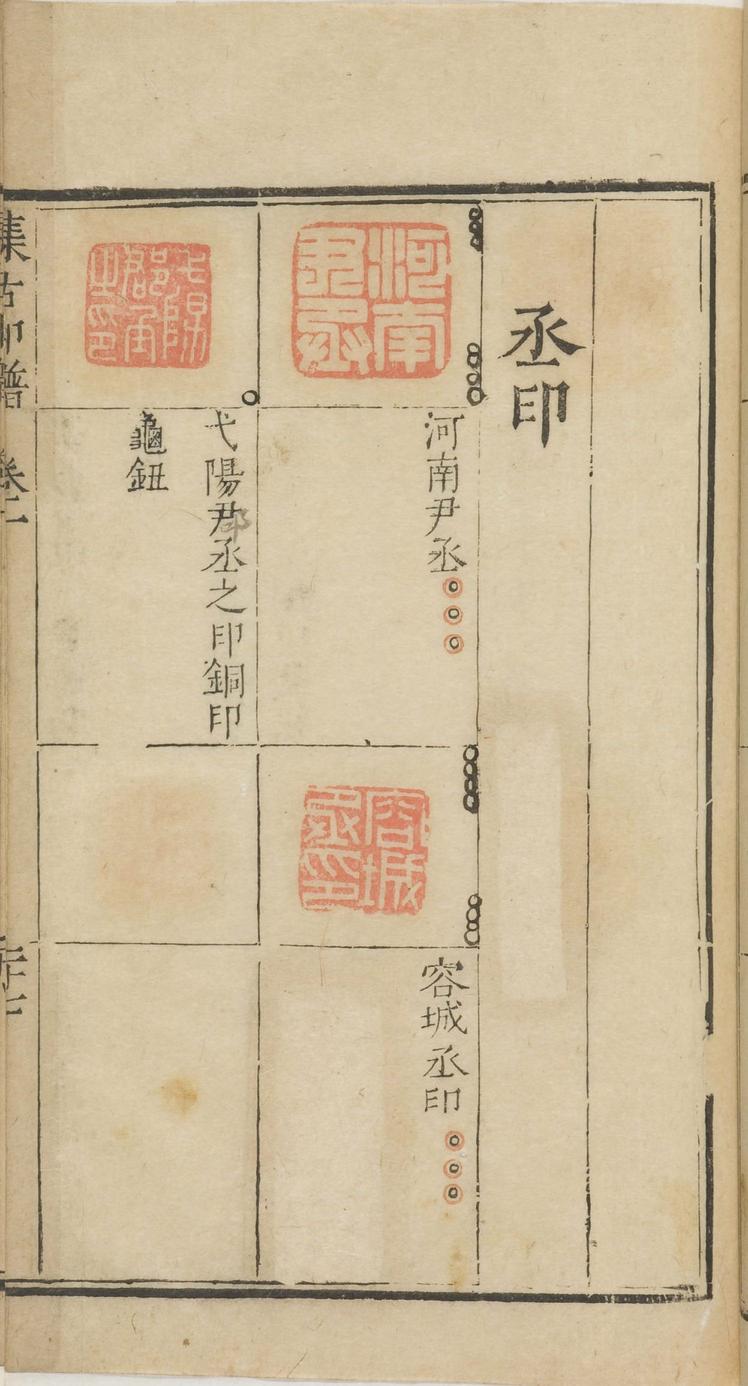 丞印
河南尹丞
河南尹丞
容城丞印
容城丞印
弋陽郡丞之印
弋陽君丞之印銅印
郡
龜鈕
集古印譜 卷二 二十七